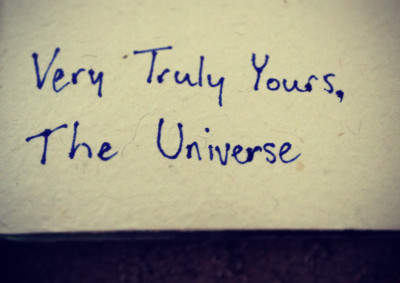 Very Truly Yours,
The Universe